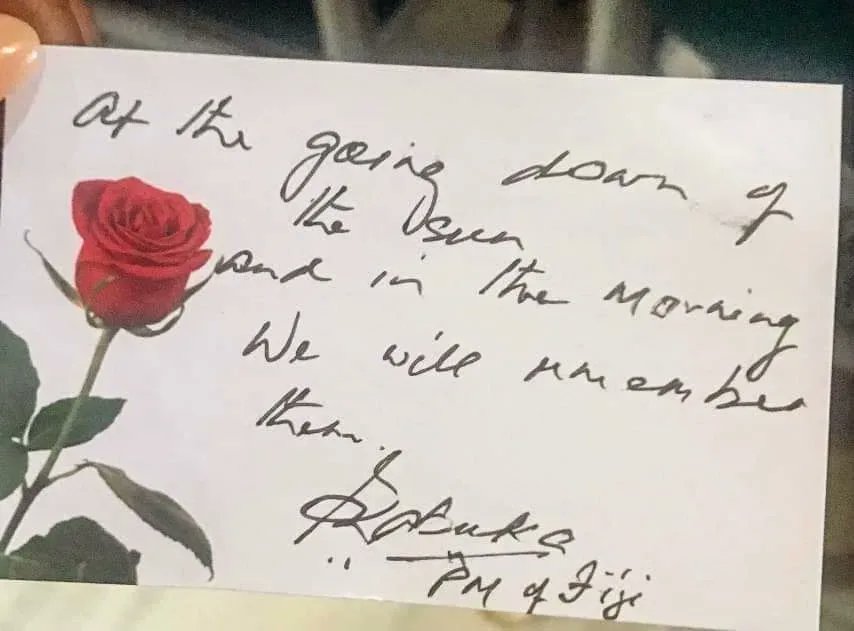 At the going down of
the sun
and in the morning
We will remember
them.
Rabuka
PM of Fiji